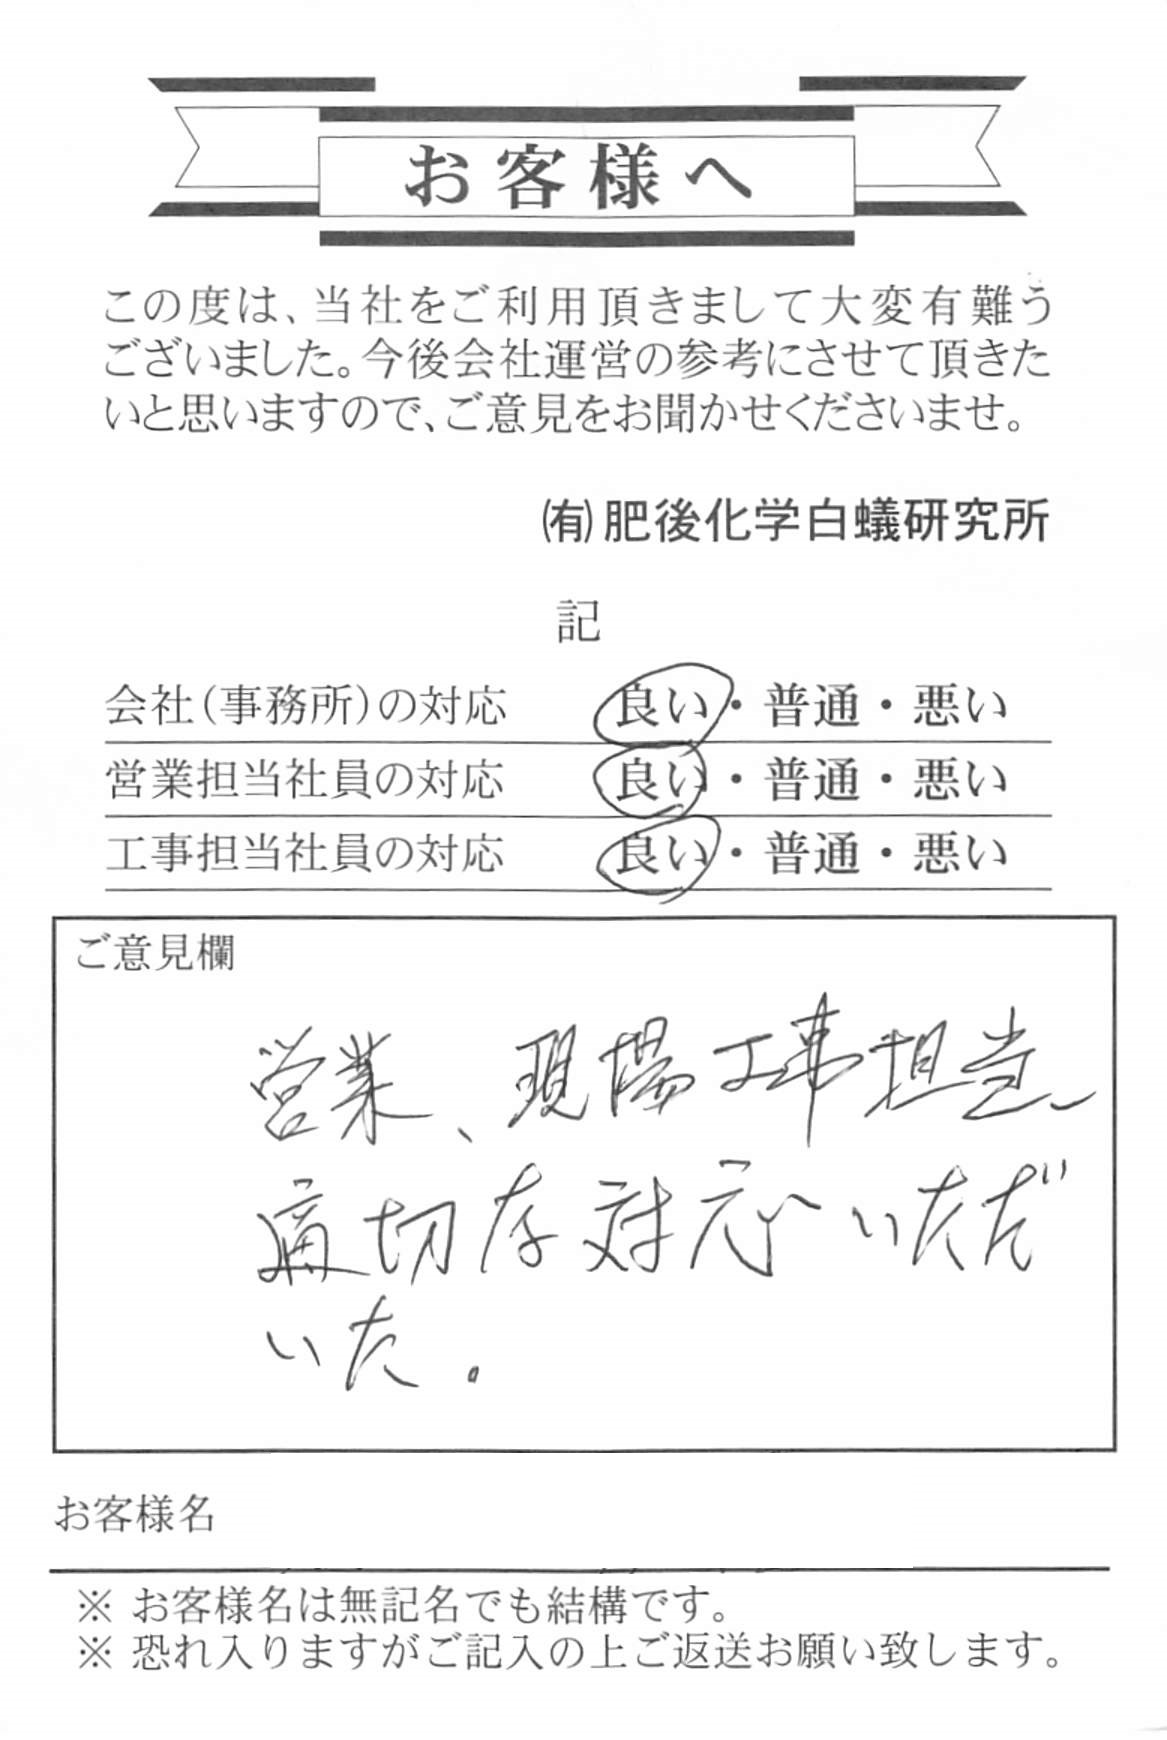 お客様へ
この度は、当社をご利用頂きまして大変有難う
ございました。今後会社運営の参考にさせて頂きた
いと思いますので、ご意見をお聞かせくださいませ。
㈲肥後化学白蟻研究所
記
会社(事務所)の対応 良い・普通・悪い
営業担当社員の対応 良い・普通・悪い
工事担当社員の対応 良い・普通・悪い
ご意見欄
営業、現場工事担当、
適切な対応いただ
いた。
お客様名
※ お客様名は無記名でも結構です。
※ 恐れ入りますがご記入の上ご返送お願い致します。